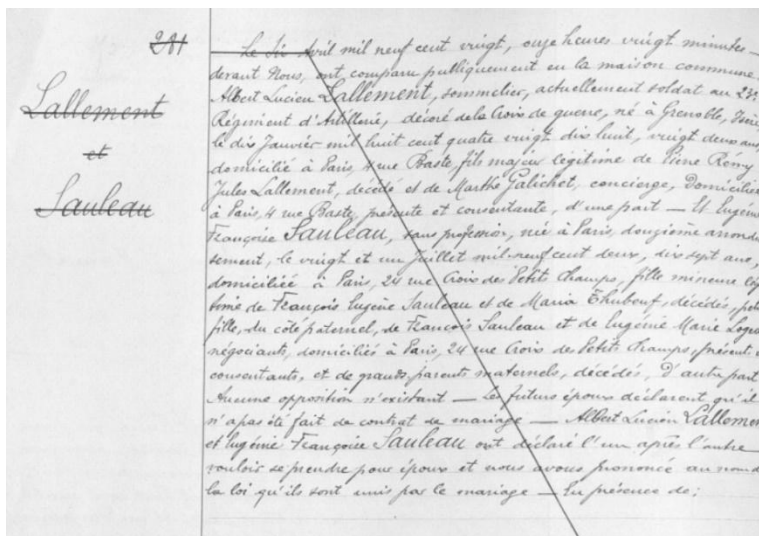 281
Lallement
et
Sauleau
Le Six Avril mil neuf cent vingt, onze heures vingt minutes
devant Nous, ont comparu publiquement en la maison commune
Albert Lucien Lallement, sommelier, actuellement soldat au 23e
Régiment d'Artillerie, décoré de la Croix de guerre, né à Grenoble, Isère,
le dix Janvier mil huit cent quatre vingt dix huit, vingt deux ans,
domicilié à Paris, 4 rue Baste, fils majeur légitime de Pierre Rémy
Jules Lallement, décédé et de Marthe Galichet, concierge, domiciliée
à Paris, 4 rue Baste, présente et consentante, d'une part — Et Eugénie
Françoise Sauleau, sans profession, née à Paris, douzième arrondis
sement, le vingt et un Juillet mil neuf cent deux, dix sept ans,
domiciliée à Paris, 24 rue Croix des Petits Champs, fille mineure légi
time de François Eugène Sauleau et de Maria Thubeuf, décédés, petite
fille, du côté paternel, de François Sauleau et de Eugénie Marie
négociants, domiciliés à Paris, 24 rue Croix des Petits Champs, présents et
consentants, et de grands parents maternels, décédés, d'autre part
Aucune opposition n'existant — Les futurs époux déclarent qu'il
n'a pas été fait de contrat de mariage — Albert Lucien Lallement
et Eugénie Françoise Sauleau ont déclaré l'un après l'autre
vouloir se prendre pour époux et nous avons prononcé au nom de
la loi qu'ils sont unis par le mariage — En présence de :